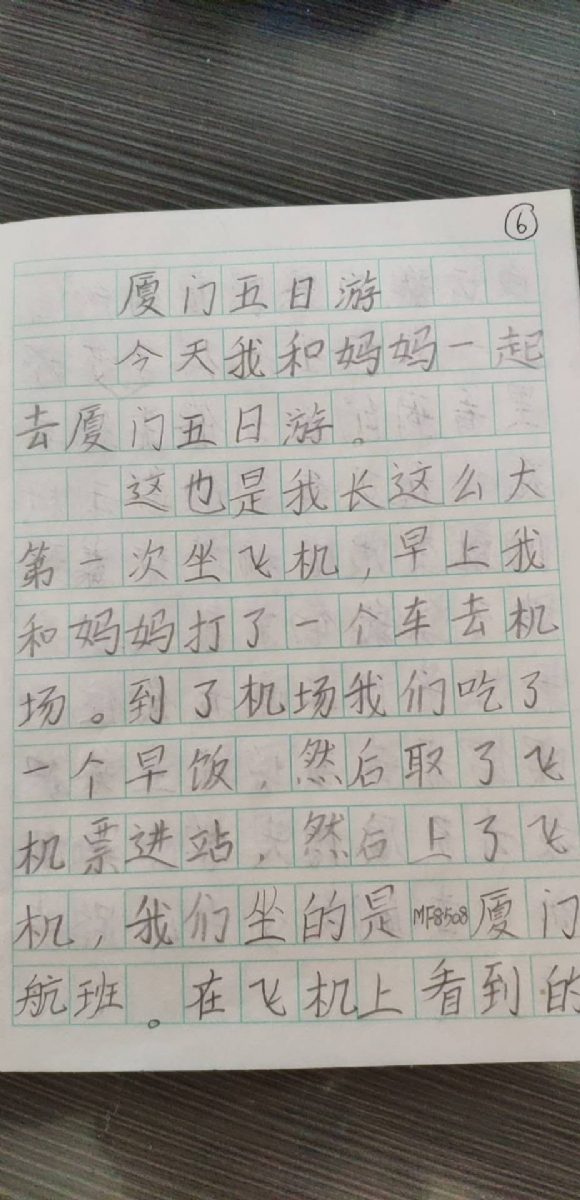 6
厦门五日游
今天我和妈妈一起
去厦门五日游。
这也是我长这么大
第一次坐飞机，早上我
和妈妈打了一个车去机
场。到了机场我们吃了
一个早饭，然后取了飞
机票进站，然后上了飞
机，我们坐的是MF8508厦门
航班。在飞机上看到的